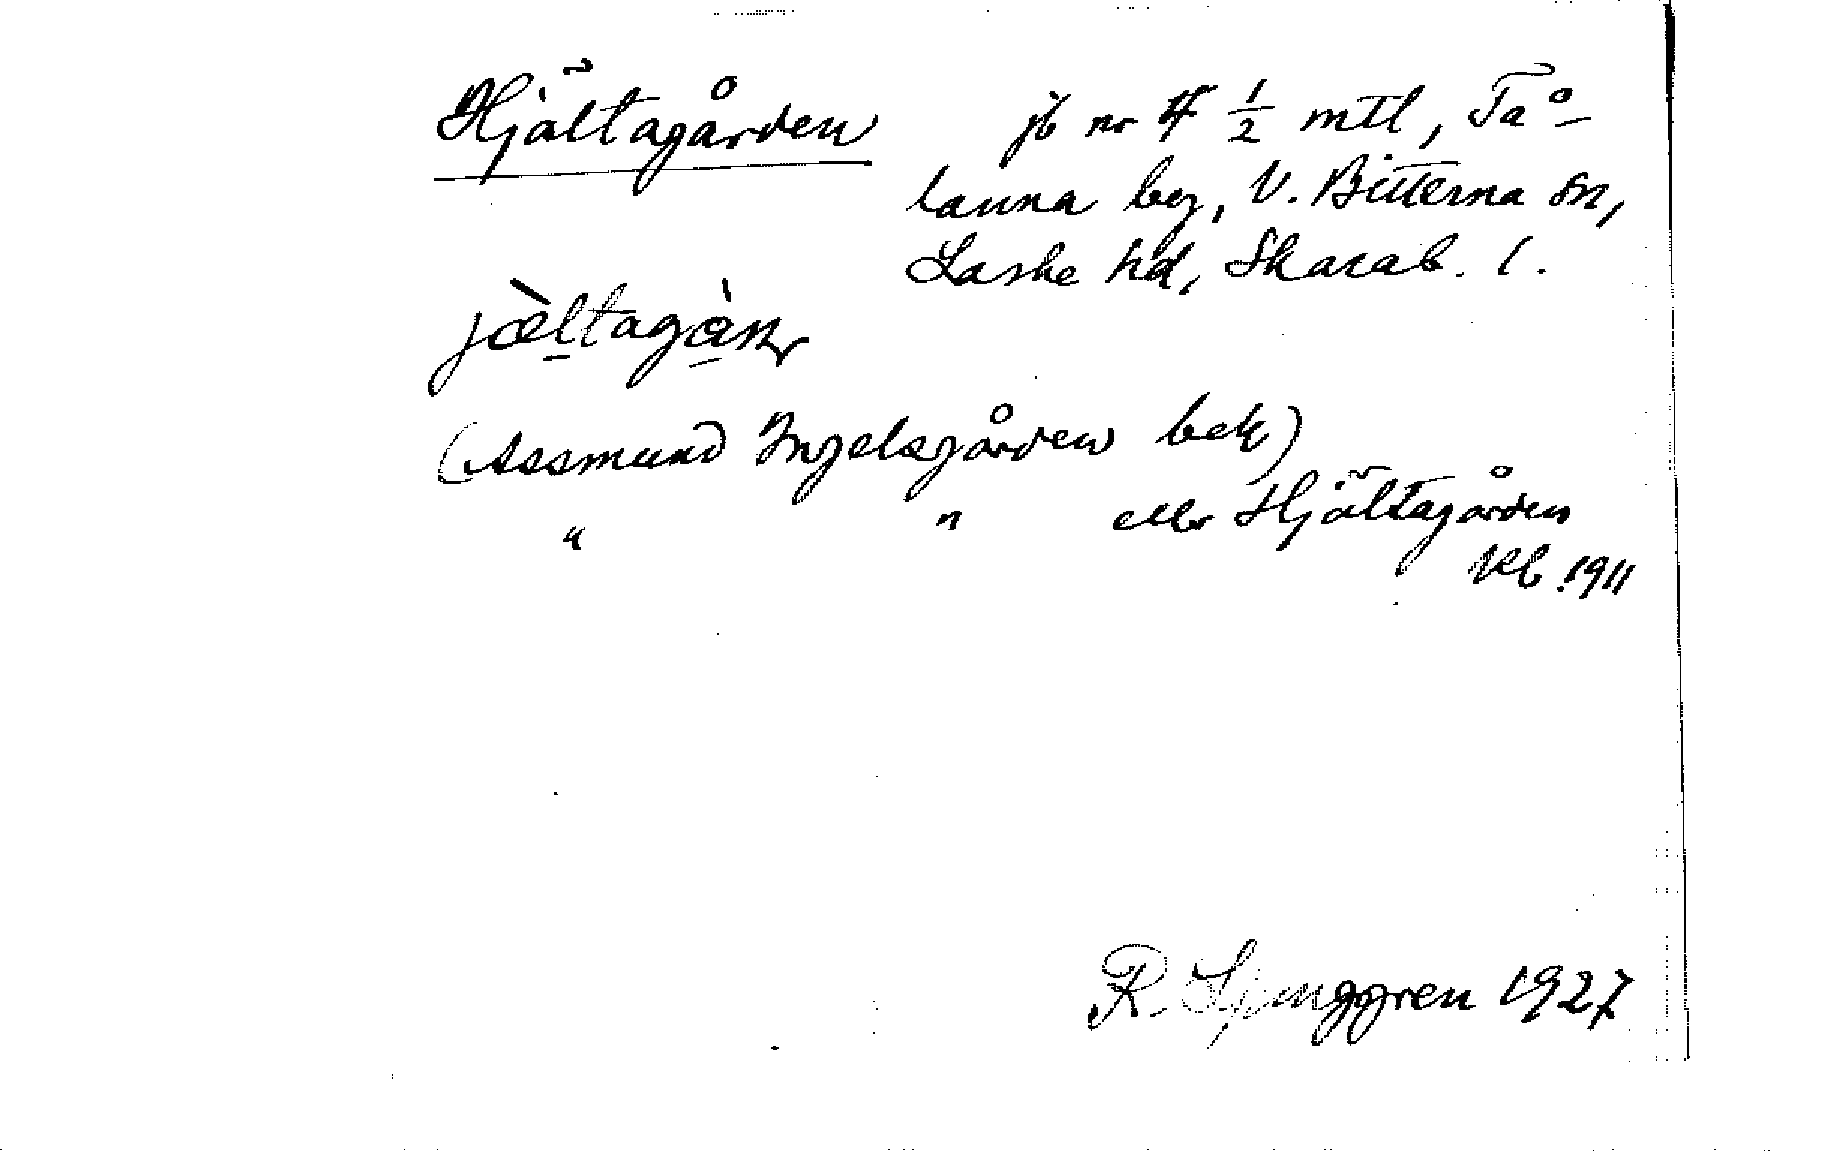 Hjältagården jb nr 4 1/2 mtl, Tå-
launa by, V. Bitterna sn,
Laske hd, Skarab. l.
jæ̀ltagàɳ
(Assmund Ingelsgården bek)
" " eller Hjältagården
Kb. 1911
R. Ljunggren 1927